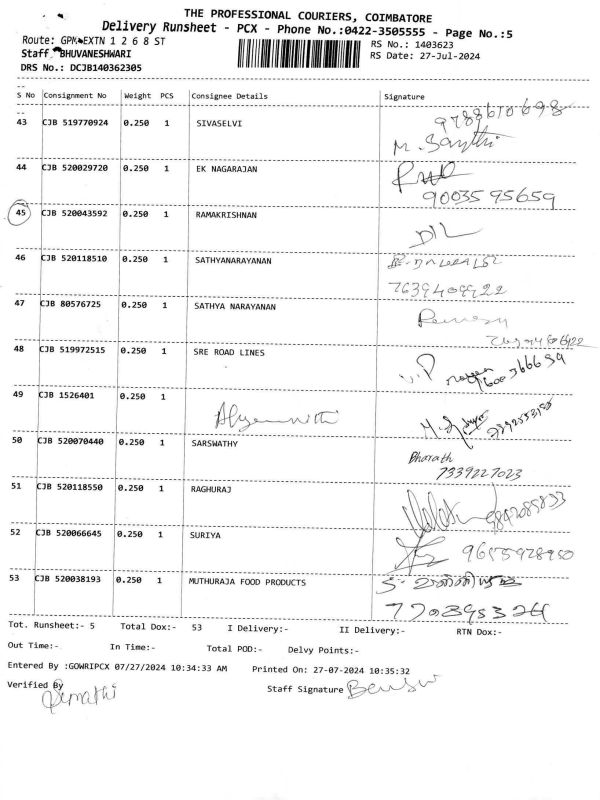 THE PROFESSIONAL COURIERS, COIMBATORE
Delivery Runsheet - PCX - Phone No.:0422-3505555 - Page No.:5
Route: GPM EXTN 1 2 6 8 ST
RS No.: 1403623
Staff BHUVANESHWARI
RS Date: 27-Jul-2024
DRS No.: DCJB140362305
S No Consignment No Weight PCS Consignee Details Signature
43 CJB 519770924 0.250 1 SIVASELVI 9788670698
M. Santhi
44 CJB 520029720 0.250 1 EK NAGARAJAN
9003595659
45 CJB 520043592 0.250 1 RAMAKRISHNAN
46 CJB 520118510 0.250 1 SATHYANARAYANAN
7639409922
47 CJB 80576725 0.250 1 SATHYA NARAYANAN
48 CJB 519972515 0.250 1 SRE ROAD LINES V.P
49 CJB 1526401 0.250 1
50 CJB 520070440 0.250 1 SARSWATHY Bharath
7339227023
51 CJB 520118550 0.250 1 RAGHURAJ
52 CJB 520066645 0.250 1 SURIYA 9655928950
53 CJB 520038193 0.250 1 MUTHURAJA FOOD PRODUCTS
Tot. Runsheet:- 5 Total Dox:- 53 I Delivery:- II Delivery:- RTN Dox:-
Out Time:- In Time:- Total POD:- Delvy Points:-
Entered By :GOWRIPCX 07/27/2024 10:34:33 AM Printed On: 27-07-2024 10:35:32
Verified By Staff Signature